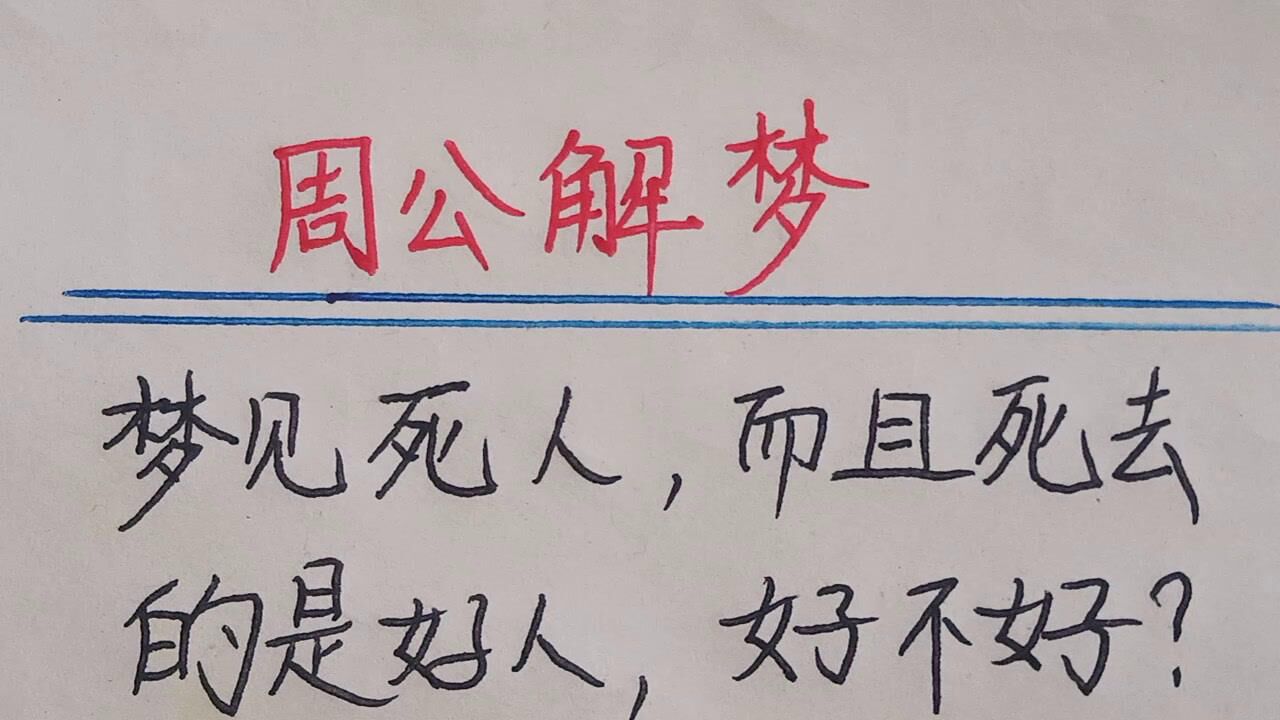 周公解梦
梦见死人,而且死去
的是好人,好不好?